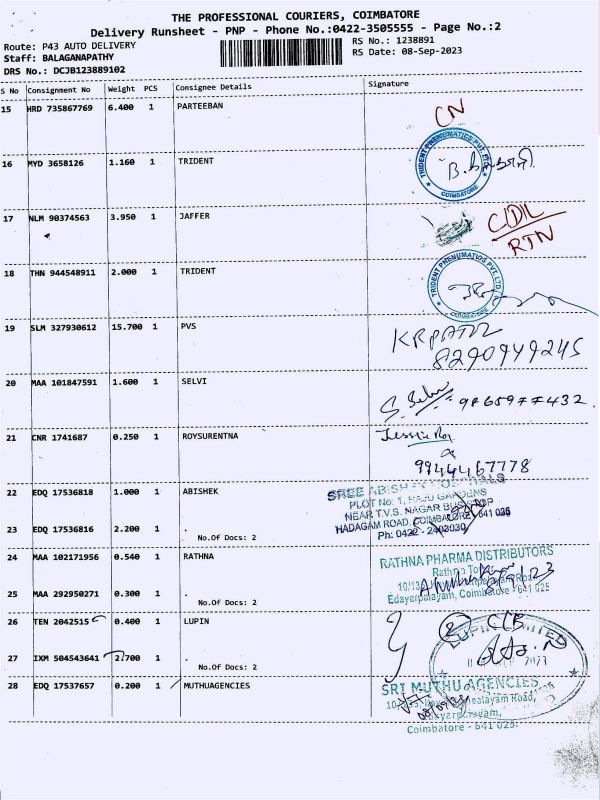 THE PROFESSIONAL COURIERS, COIMBATORE
Delivery Runsheet - PNP - Phone No.:0422-3505555 - Page No.:2
Route: P43 AUTO DELIVERY
RS No.: 1238891
Staff: BALAGANAPATHY
RS Date: 08-Sep-2023
DRS No.: DCJB123889102
S No Consignment No Weight PCS Consignee Details Signature
15 HRD 735867769 6.400 1 PARTEEBAN
CN
16 MYD 3658126 1.160 1 TRIDENT
TRIDENT PNEUMATICS PVT. LTD.
COIMBATORE
17 NLM 90374563 3.950 1 JAFFER
RTN
18 THN 944548911 2.000 1 TRIDENT
TRIDENT PNEUMATICS PVT. LTD.
COIMBATORE
19 SLM 327930612 15.700 1 PVS
8290949245
20 MAA 101847591 1.600 1 SELVI
S. Selvi 9965977432.
21 CNR 1741687 0.250 1 ROYSURENTNA
Jessie Roy
9944467778
22 EDQ 17536818 1.000 1 ABISHEK
SREE ABISHEK HOSPITALS
PLOT No: 1, RAJU GARDENS
NEAR T.V.S. NAGAR BUS STOP
HADAGAM ROAD, COIMBATORE - 641 025
Ph: 0422 - 2403030
23 EDQ 17536816 2.200 1 .
No.Of Docs: 2
24 MAA 102171956 0.540 1 RATHNA
RATHNA PHARMA DISTRIBUTORS
Edayerpalayam, Coimbatore - 641 025
25 MAA 292950271 0.300 1 .
No.Of Docs: 2
26 TEN 2042515 0.400 1 LUPIN
2
LUPIN LIMITED
27 IXM 504543641 2.700 1 .
No.Of Docs: 2
28 EDQ 17537657 0.200 1 MUTHUAGENCIES
SRI MUTHU AGENCIES
Edayarpalayam,
Coimbatore - 641 025.